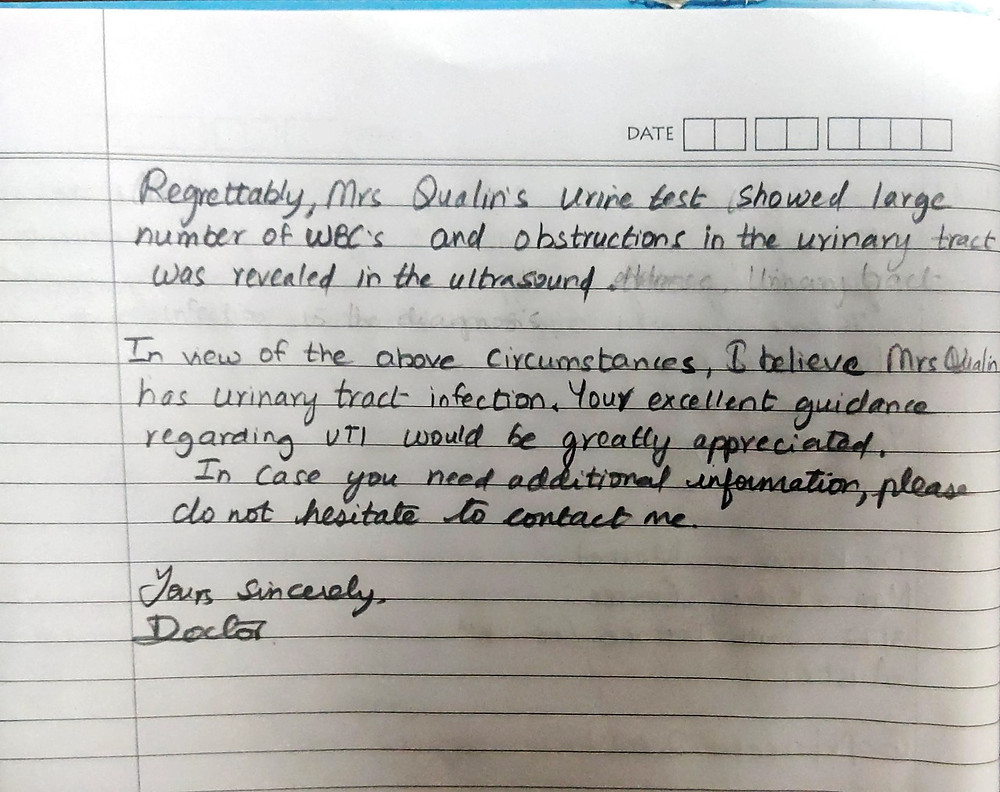 DATE
Regrettably, Mrs Qualin's urine test showed large
number of WBC's and obstructions in the urinary tract
was revealed in the ultrasound. Urinary tract
is the diagnosis
In view of the above circumstances, I believe Mrs Qualin
has urinary tract infection. Your excellent guidance
regarding UTI would be greatly appreciated.
In case you need additional information, please
do not hesitate to contact me.
Yours sincerely,
Doctor